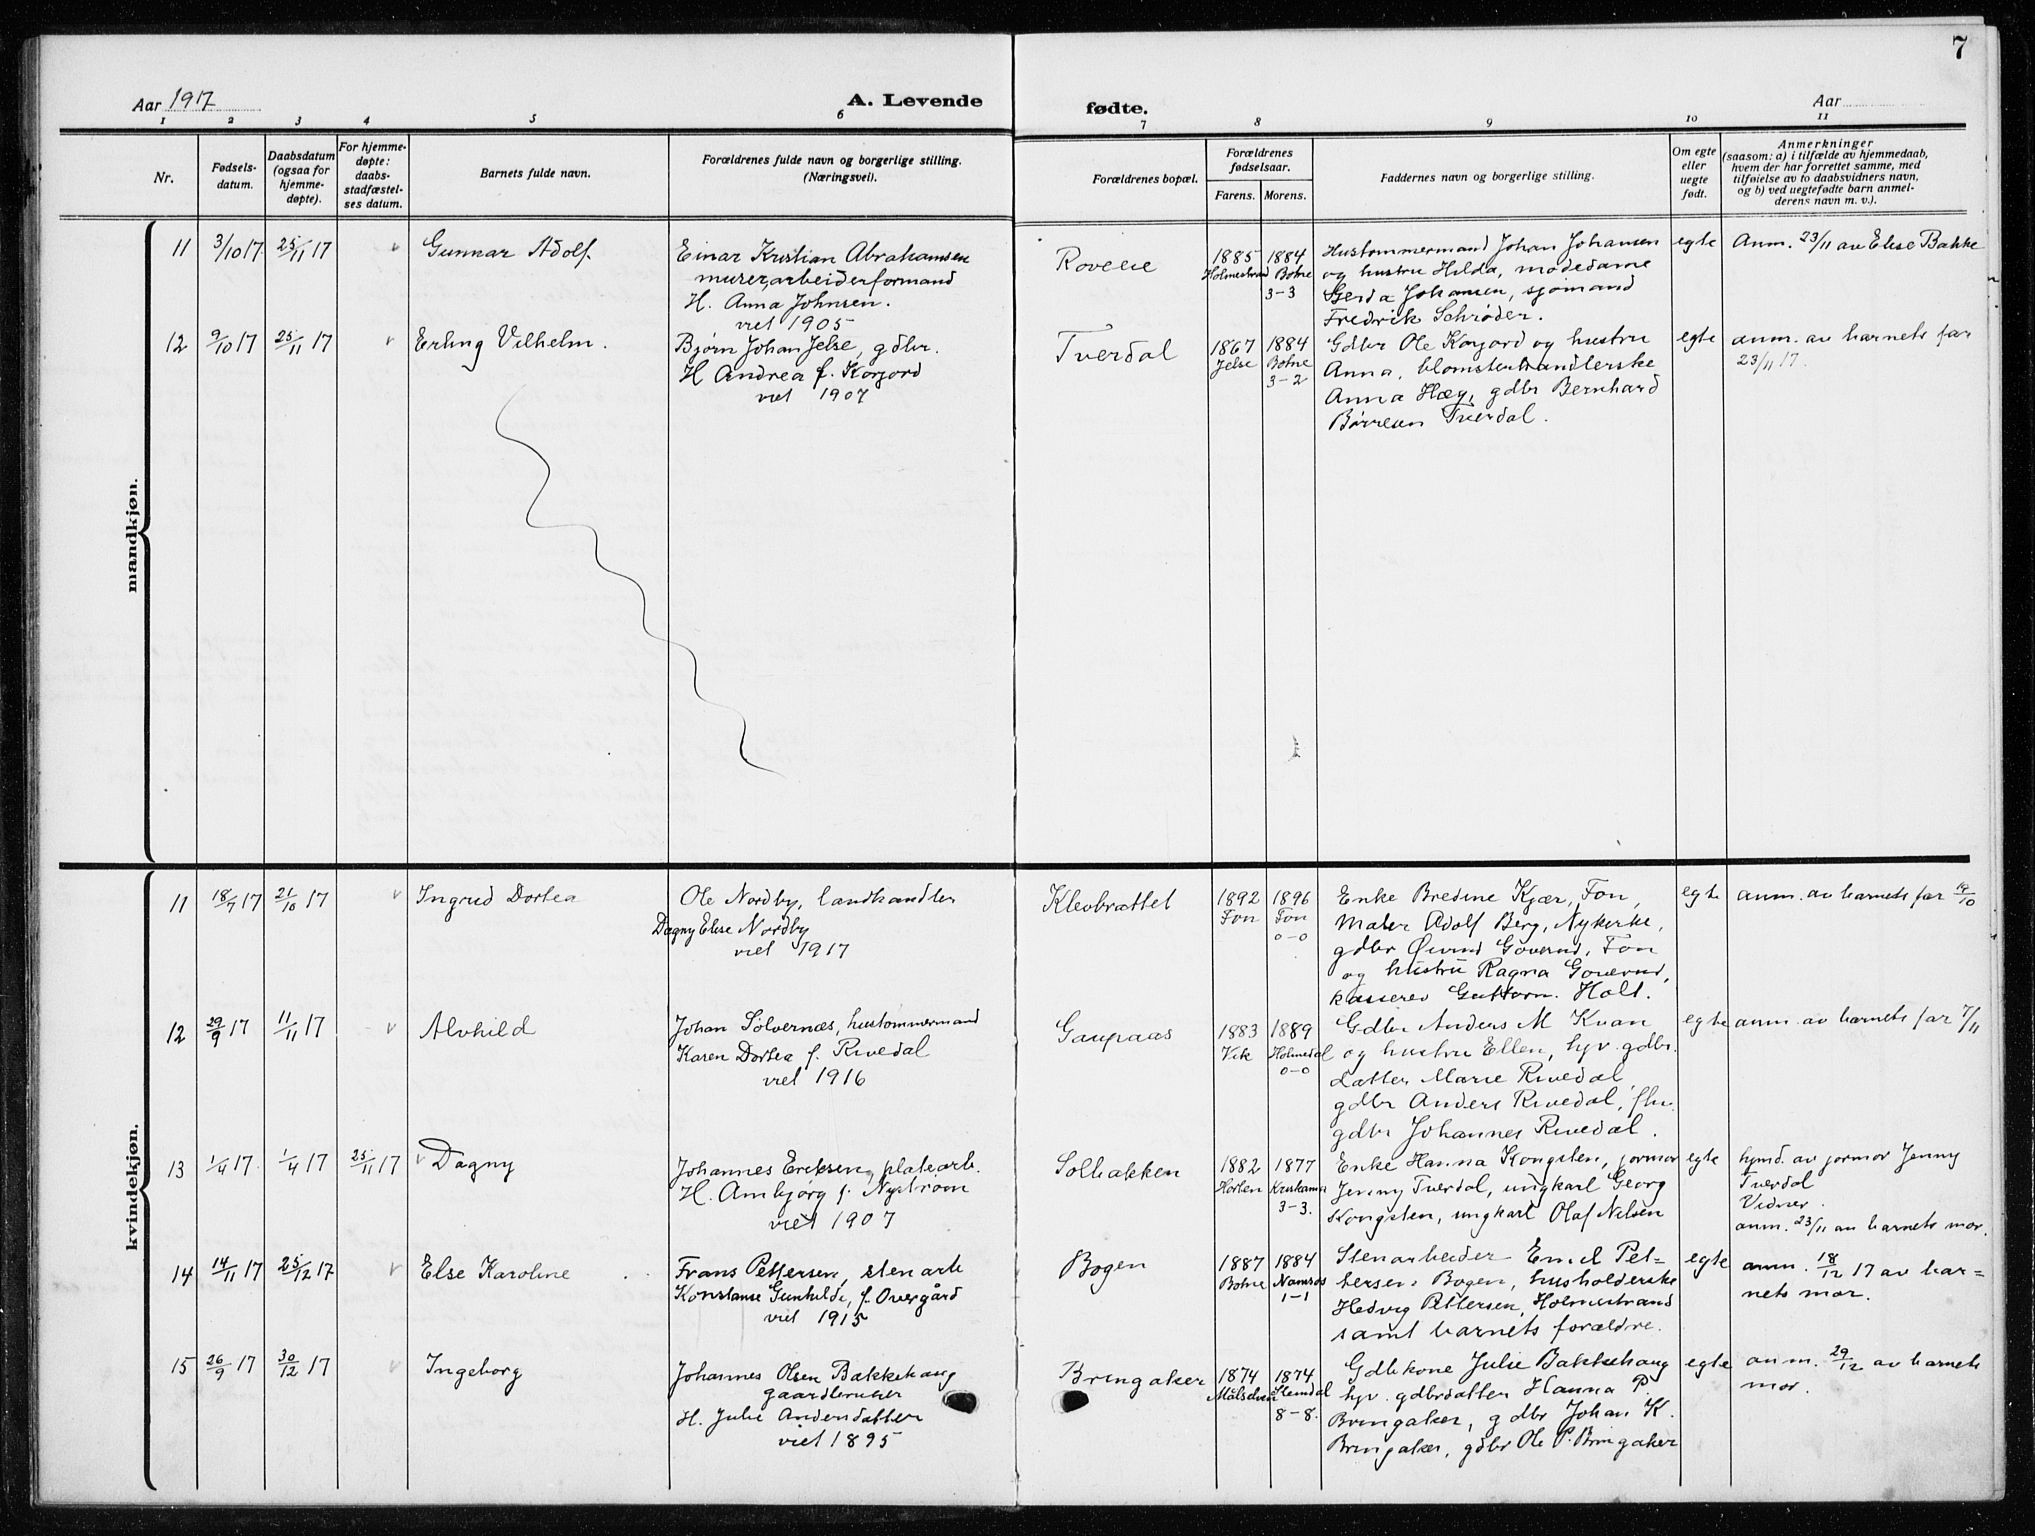 7
Aar 1917
A. Levende
fødte.
Aar
1 2 3 4 5 6 7 8 9 10 11
Nr.
Fødsels-
datum.
Daabsdatum
(ogsaa for
hjemme-
døpte).
For hjemme-
døpte:
daabs-
stadfæstel-
ses datum.
Barnets fulde navn.
Forældrenes fulde navn og borgerlige stilling.
(Næringsvei).
Forældrenes bopæl.
Forældrenes
fødselsaar.
Farens. Morens.
Faddernes navn og borgerlige stilling.
Om egte
eller
uegte
født.
Anmerkninger
(saasom: a) i tilfælde av hjemmedaab,
hvem der har forrettet samme, med
tilføielse av to daabsvidners navn,
og b) ved uegtefødte barn anmel-
derens navn m. v.).
mandkjøn.
11 3/10 17 25/11 17 v Gunnar Adolf
Einar Kristian Abrahamsen
murerarbeiderformand
H. Anna Johnsen.
viet 1905
Roveie
1885 1884
Holmestrand Botne
3-3
Hustømmermand Johan Johansen
og hustru Hilda, motedame
Gerda Johansen, sjømand
Fredrik Schrøder.
egte
Anm. 23/11 av Elise Bakke
12 9/10 17 25/11 17 v Erling Vilhelm.
Bjørn Johan Jelse, gdbr.
H Andrea f. Korjord
viet 1907
Tverdal
1867 1884
Jelse Botne
3-2
Gdbr Ole Korjord og hustru
Anna, blomsterhandlerske
Anna Hæg, gdbr Bernhard
Børresen Tverdal.
egte
anm. av barnets far
23/11 17.
kvindekjøn.
11 18/7 17 21/10 17 v Ingrid Dortea
Ole Nordby, landhandler
Dagny Elise Nordby
viet 1917
Klevbrattet
1892 1896
Fon Fon
0-0
Enke Bredine Kjær, Fon,
Maler Adolf Berg, Nykirke,
gdbr Øivind Goverud, Fon
og hustru Ragna Goverud,
kasserer Guttorm Holt.
egte
anm. av barnets far 19/10
12 29/9 17 11/11 17 v Alvhild
Johan Sølvernæs, hustømmermand
Karen Dortea f. Rivedal
viet 1916
Gaupaas
1883 1889
Vik Holmedal
0-0
Gdbr Anders M Kvan
og hustru Ellen, hjv. gdbr.
datter Marie Rivedal
gdbr Anders Rivedal, fhv.
gdbr Johannes Rivedal.
egte
anm. av barnets far 7/11
13 1/4 17 1/4 17 25/11 17 v Dagny
Johannes Eriksen, platearb.
H. Ambjørg f. Nystrøm
viet 1907
Solbakken
1882 1877
Horten Kristiania
3-3.
Enke Hanna Kongsten, jormor
Jenny Tverdal, ungkarl Georg
Kongsten, ungkarl Olaf Nilsen
egte
hjmd. av jormor Jenny
Tverdal
Vidner.
anm. 23/11 av barnets mor.
14 14/11 17 25/12 17 v Else Karoline
Frans Pettersen, stenarb
Konstanse Gunhilde, f. Overgård
viet 1915
Bogen
1887 1884
Botne Namsos
1-1
Stenarbeider Emil Pet-
tersen, Bogen, husholderske
Hedvig Pettersen, Holmestrand
samt barnets forældre.
egte
anm. 18/12 17 av bar=
nets mor.
15 26/9 17 30/12 17 v Ingeborg
Johannes Olsen Bakkehaug
gaardbruker
H. Julie Andersdatter
viet 1895
Bringaker
1874 1874
Målselven Slemdal
8-8.
Gdbkone Julie Bakkehaug
hjv. gdbrdatter Hanna P.
Bringaker, gdbr Johan K.
Bringaker, gdbr Ole P. Bringaker
egte
anm. 29/12 av barnets
mor.